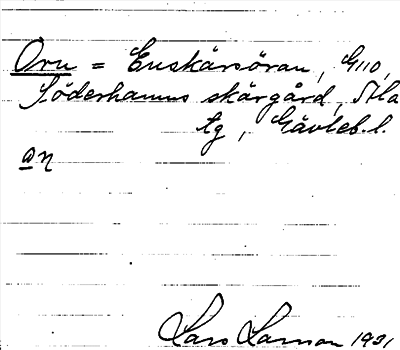 Oru = Enskärsöran, G110,
Söderhamns skärgård, Ala
tg, Gävleb.l.
an
Lars Larsson 1931